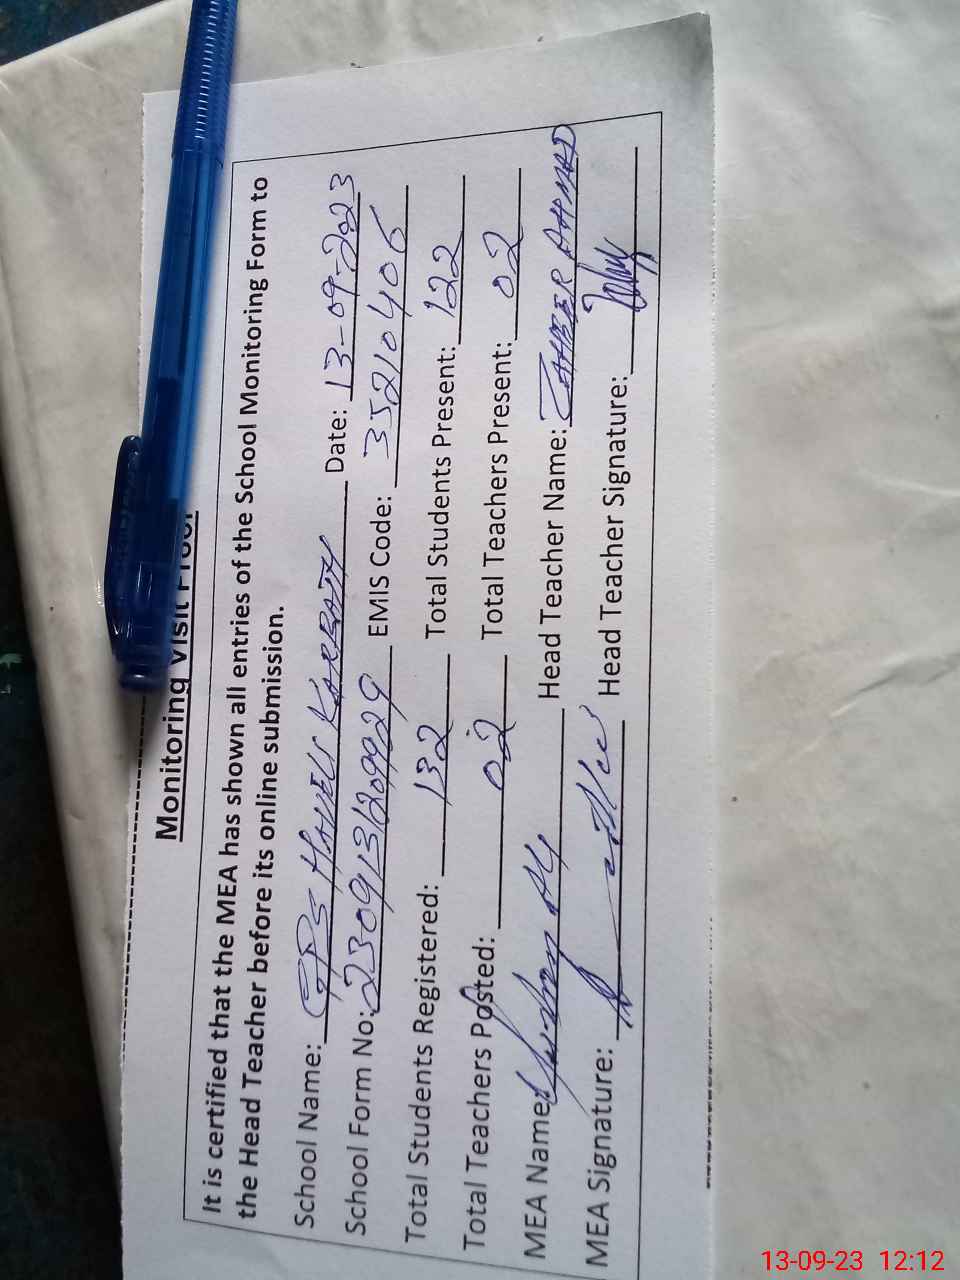 Monitoring Visit Proof
It is certified that the MEA has shown all entries of the School Monitoring Form to
the Head Teacher before its online submission.
School Name: GPS HAVELI KARBATH Date: 13-09-2023
School Form No: 2309131209929 EMIS Code: 35210406
Total Students Registered: 132 Total Students Present: 122
Total Teachers Posted: 02 Total Teachers Present: 02
MEA Name: Head Teacher Name: ZAHEER AHMAD
MEA Signature: Head Teacher Signature:
13-09-23 12:12